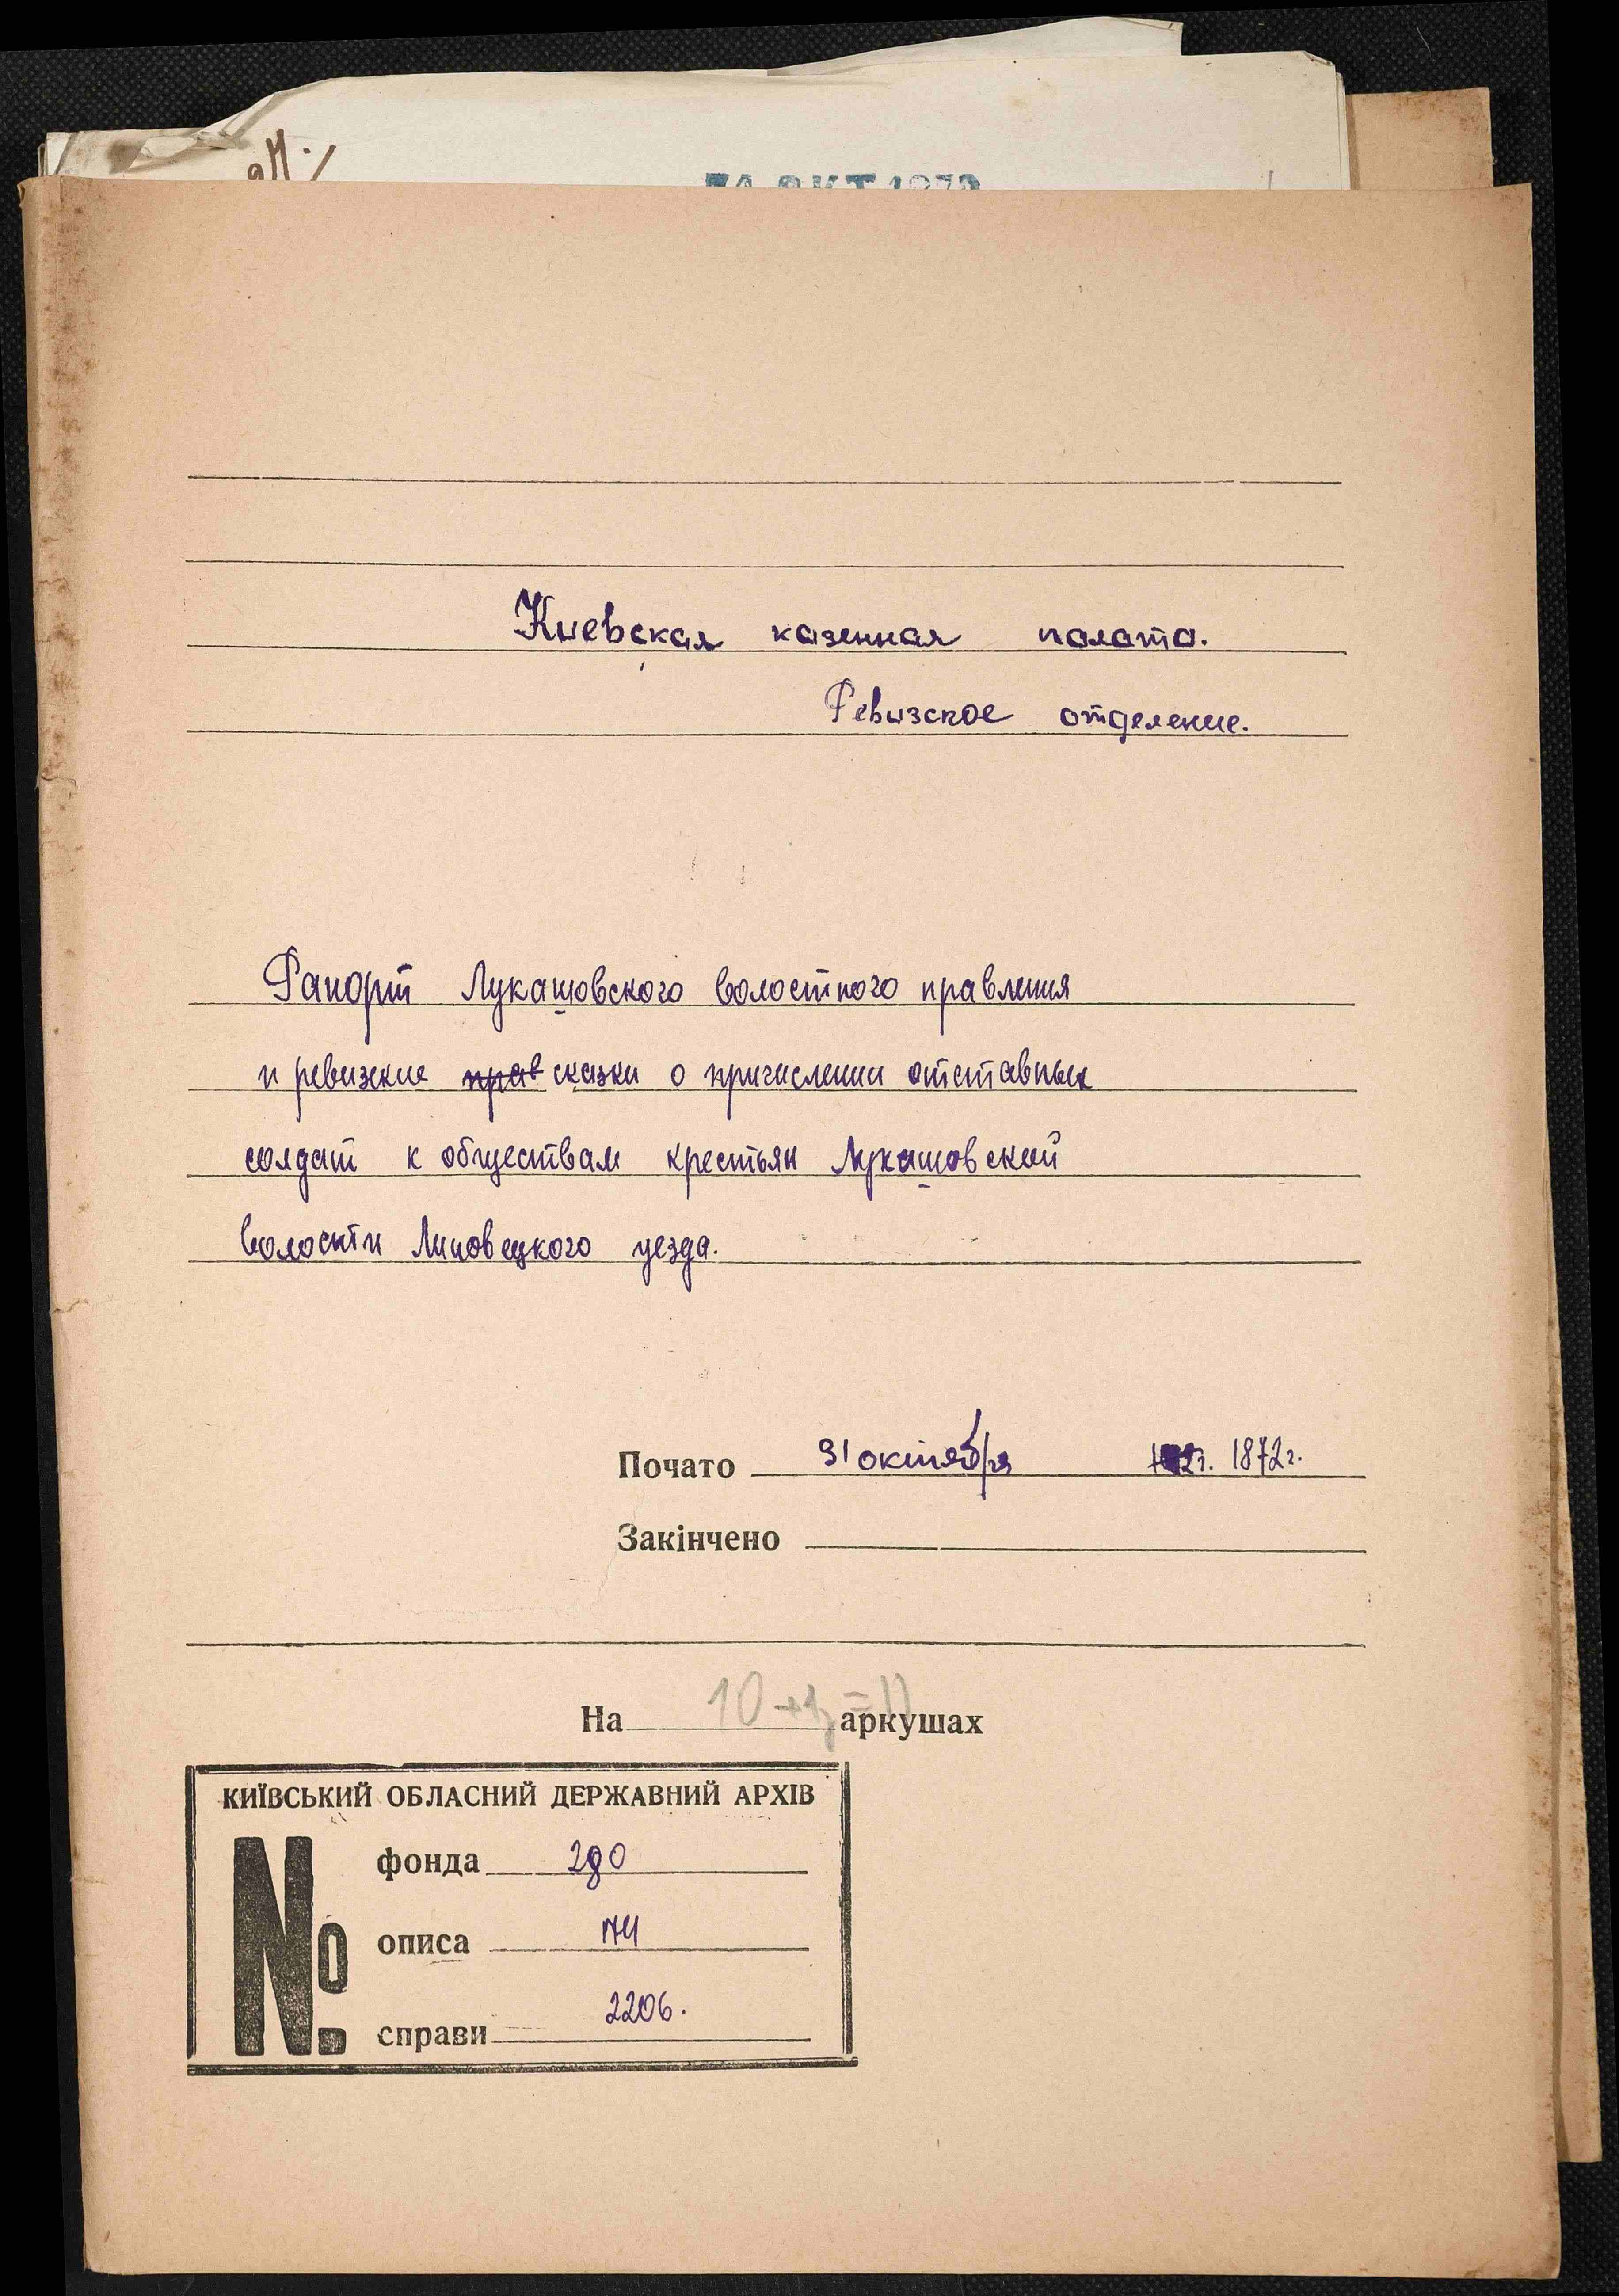 31 ОКТ 1872
Киевская казенная палата.
Ревизское отделение.
Рапорт Лукашовского волостного правления
и ревизские прав сказки о причислении отставных
солдат к обществам крестьян Лукашовской
волости Липовецкого уезда.
Почато 31 октября 1872г.
Закінчено
На 10+1=11 аркушах
КИЇВСЬКИЙ ОБЛАСНИЙ ДЕРЖАВНИЙ АРХІВ
№ фонда 280
описа 174
справи 2206.